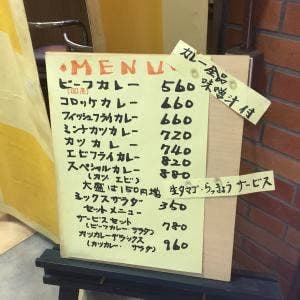 MENU
ビーフカレー 560
(国産)
コロッケカレー 660
フィッシュフライカレー 660
ミンチカツカレー 720
カツカレー 740
エビフライカレー 820
スペシャルカレー 880
(カツ エビ)
大盛は150円増
ミックスサラダー 350
セットメニュー
サービスセット 780
(ビーフカレー・サラダ)
カツカレーデラックス 960
(カツカレー・サラダ)
カレー全品
味噌汁付
生タマゴ・らっきょう サービス